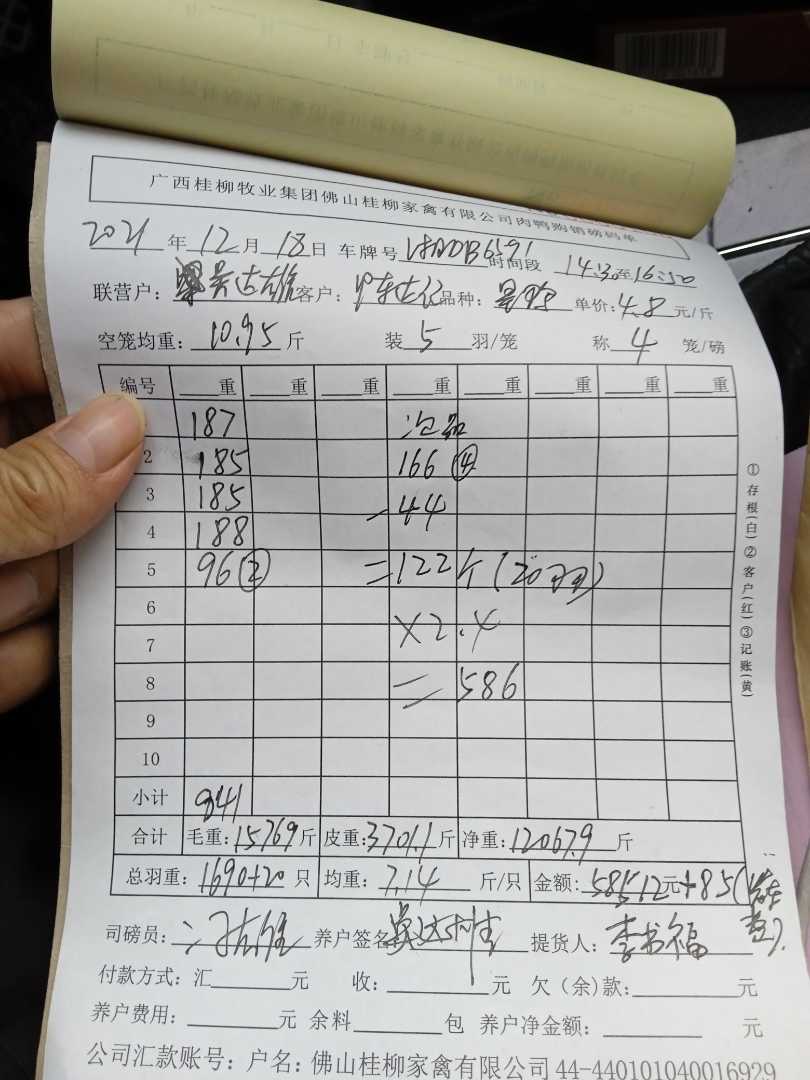 广西桂柳牧业集团佛山桂柳家禽有限公司肉鸭购销磅码单
2021年12月18日 车牌号 时间段 14:30至16:50
联营户: 吴达雄 客户: 品种: 单价:4.8元/斤
空笼均重:10.95斤 装5羽/笼 称4笼/磅
编号 重 重 重 重 重 重 重 重
187
2 185 166 ④
3 185 -44
4 188
5 96② =122斤(20羽)
6
7 ×2.4
8 =586
9
10
小计 841
合计 毛重:15769斤 皮重:3701.1斤 净重:12067.9斤
总羽重:1690+20只 均重:7.14斤/只 金额:58512元+85
司磅员: 养户签名 吴达雄 提货人:李书福
付款方式:汇 元 收: 元 欠(余)款: 元
养户费用: 元 余料 包 养户净金额: 元
公司汇款账号:户名:佛山桂柳家禽有限公司44-440101040016929
①存根(白)②客户(红)③记账(黄)